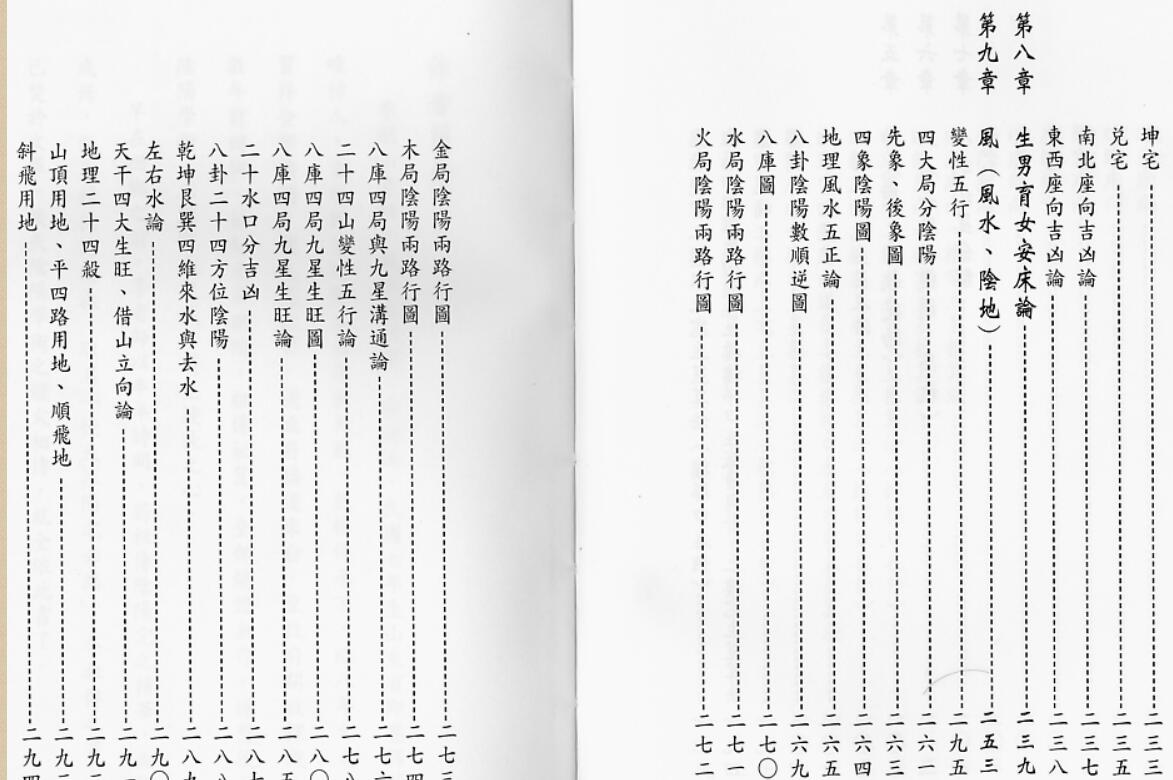 坤宅 二三三
兌宅 二三五
南北座向吉凶論 二三七
東西座向吉凶論 二三八
第八章 生男育女安床論 二三九
第九章 風（風水、陰地） 二五三
變性五行 二九五
四大局分陰陽 二六一
先象、後象圖 二六三
四象陰陽圖 二六四
地理風水五正論 二六五
八卦陰陽數順逆圖 二六九
八庫圖 二七〇
水局陰陽兩路行圖 二七一
火局陰陽兩路行圖 二七二
金局陰陽兩路行圖 二七三
木局陰陽兩路行圖 二七四
八庫四局與九星溝通論 二七六
二十四山變性五行論 二七八
八庫四局九星生旺圖 二八〇
八庫四局九星生旺論 二八五
二十水口分吉凶 二八七
八卦二十四方位陰陽 二八八
乾坤艮巽四維來水與去水 二八九
左右水論 二九〇
天干四大生旺、借山立向論 二九一
地理二十四殺 二九
山頂用地、平四路用地、順飛地 二九
斜飛用地 二九四